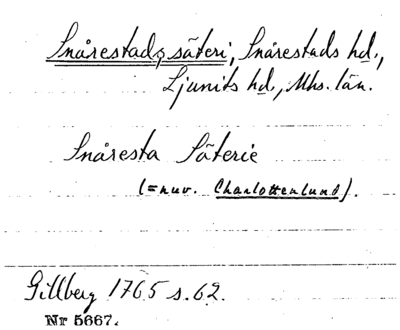 Snårestads säteri, Snårestads hd.,
Ljunits hd., Mhs. län.
Snåresta Säterie
(= nuv. Charlottenlund).
Gillberg 1765 s. 62.
Nr 5667.